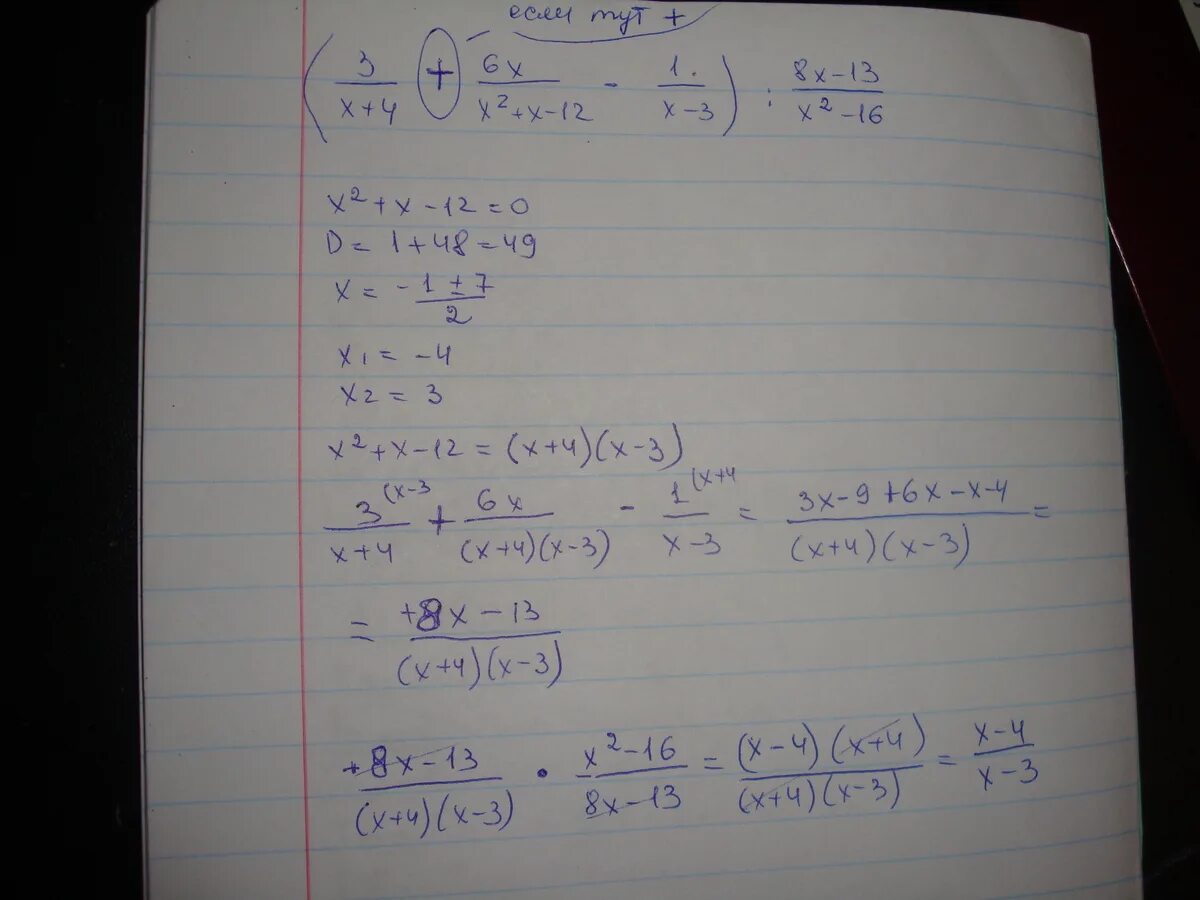 если тут +
(3/(x+4) + 6x/(x²+x-12) - 1/(x-3)) : (8x-13)/(x²-16)
x²+x-12=0
D=1+48=49
x= (-1±7)/2
x₁=-4
x₂=3
x²+x-12=(x+4)(x-3)
3^(x-3/(x+4) + 6x/((x+4)(x-3)) - 1^(x+4/(x-3) = (3x-9+6x-x-4)/((x+4)(x-3)) =
= (+8x-13)/((x+4)(x-3))
(+8x-13)/((x+4)(x-3)) · (x²-16)/(8x-13) = ((x-4)(x+4))/((x+4)(x-3)) = (x-4)/(x-3)